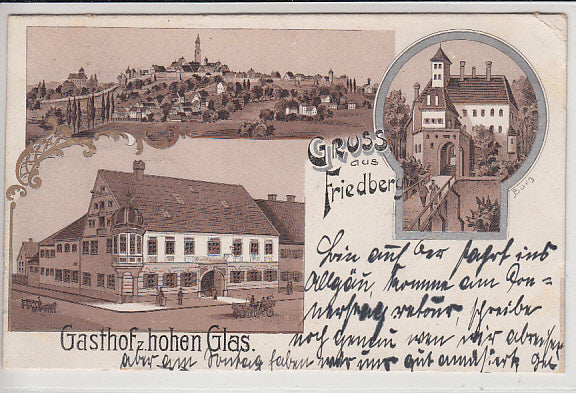 Gruss
aus
Friedberg
Burg
Bin auf der Fahrt ins
Allgäu, komme am Don-
nerstag retour, schreibe
noch genau wen wir abreisen
Gasthof z. hohen Glas.
aber am Sontag haben wir uns gut amüsiert